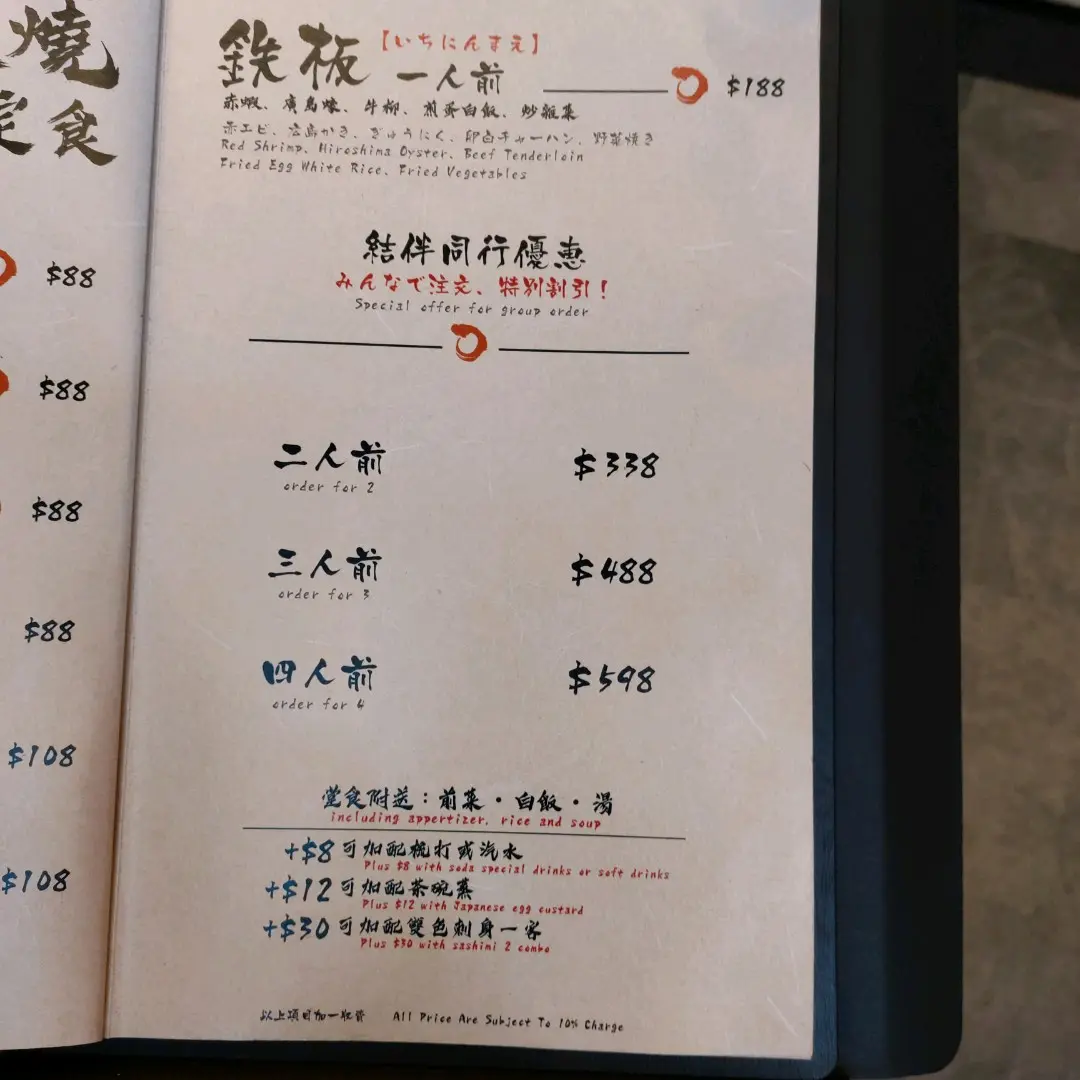 燒
定食
$88
$88
$88
$88
$108
$108
鉄板【いちにんまえ】
一人前 $188
赤蝦、廣島蠔、牛柳、煎蛋白飯、炒雜菜
赤エビ、広島かき、ぎゅうにく、卵白チャーハン、野菜焼き
Red Shrimp、Hiroshima Oyster、Beef Tenderloin
Fried Egg White Rice、Fried Vegetables
結伴同行優惠
みんなで注文、特別割引！
Special offer for group order
二人前 $338
order for 2
三人前 $488
order for 3
四人前 $598
order for 4
堂食附送：前菜・白飯・湯
including appertizer, rice and soup
+$8 可加配梳打或汽水
Plus $8 with soda special drinks or soft drinks
+$12 可加配茶碗蒸
Plus $12 with Japanese egg custard
+$30 可加配雙色刺身一客
Plus $30 with sashimi 2 combo
以上項目加一收費 All Price Are Subject To 10% Charge